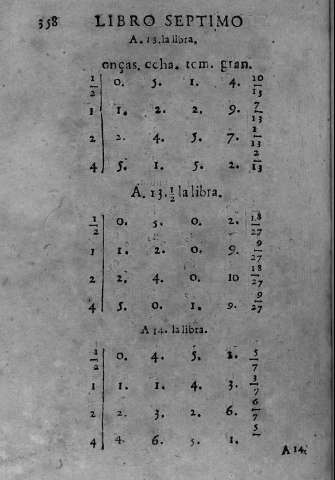 358 LIBRO SEPTIMO
A. 13. la libra.
onças. ocha. tem. gran.
1/2 0. 5. 1. 4. 10/13
1 1. 2. 2. 9. 7/13
2 2. 4. 5. 7. 1/13
4 5. 1. 5. 2. 2/13
A. 13. 1/2 la libra.
1/2 0. 5. 0. 2. 18/27
1 1. 2. 0. 9. 9/27
2 2. 4. 0. 10 18/27
4 5. 0. 1. 9. 9/27
A 14. la libra.
1/2 0. 4. 5. 5/7
1 1. 1. 4. 3. 3/7
2 2. 3. 2. 6. 6/7
4 4. 6. 5. 1. 5
A 14.